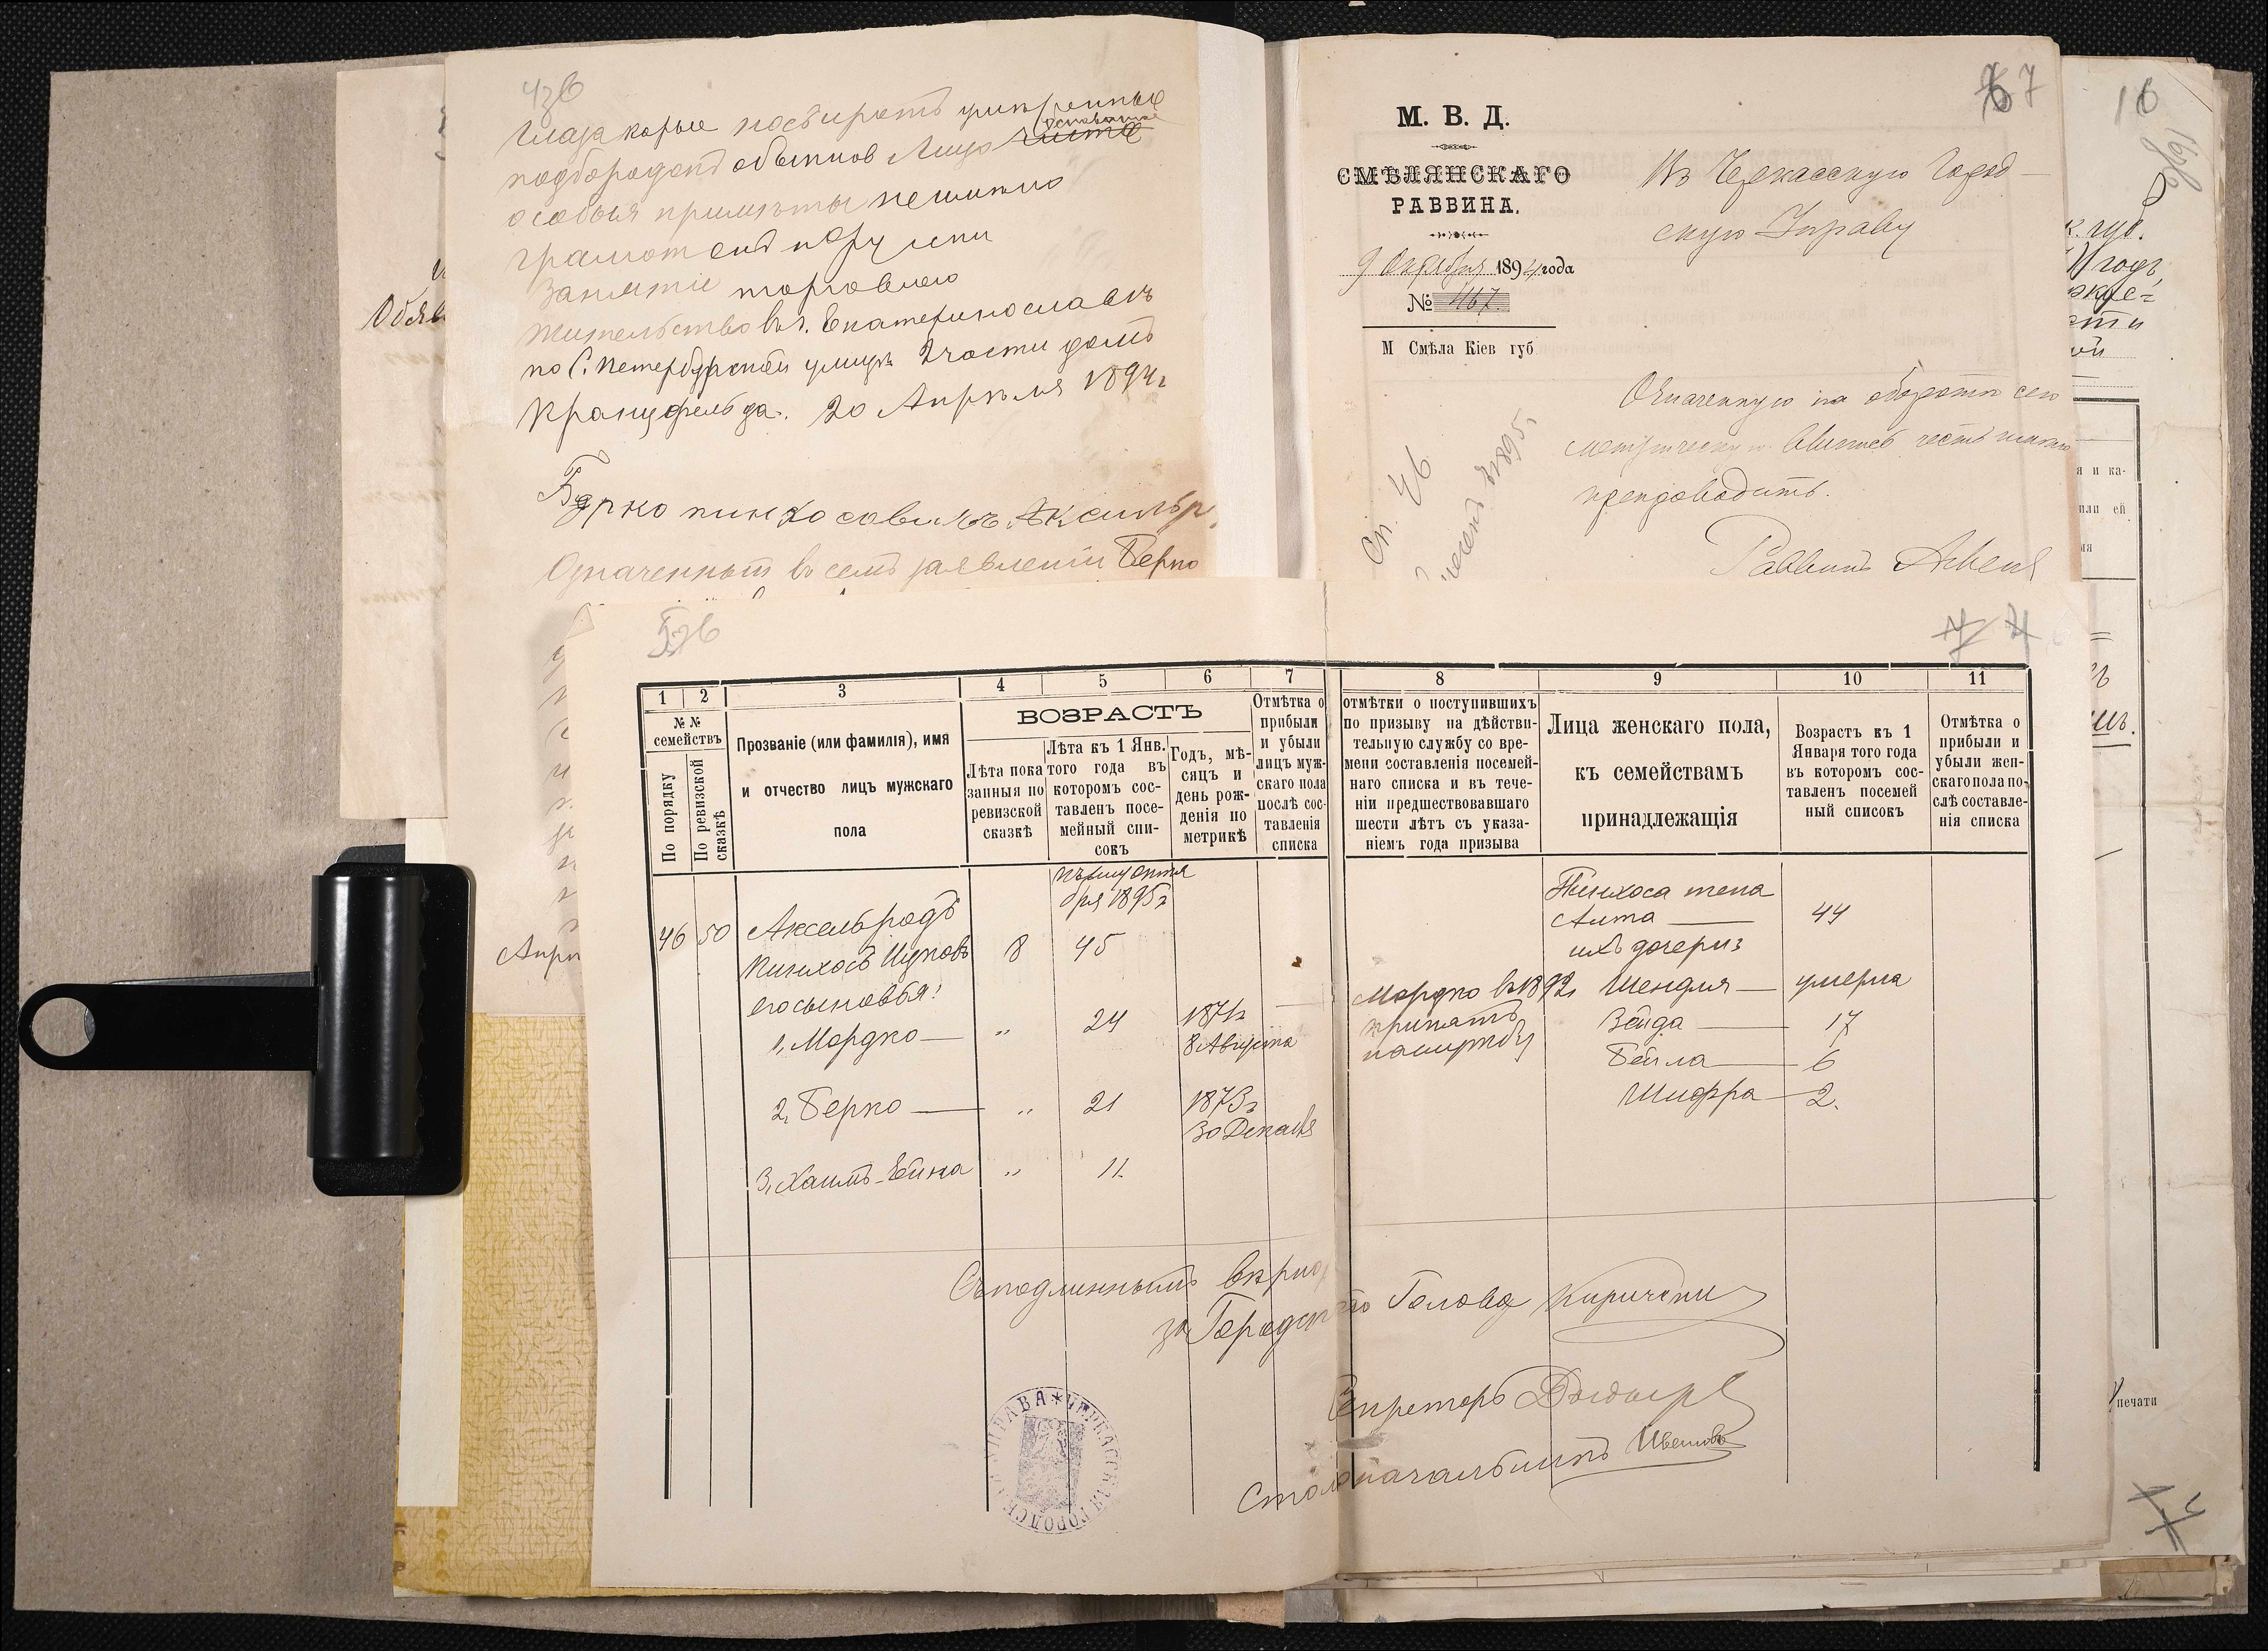 глаза карые носъ и ротъ умѣренные
подбородокъ обыкнов лицо чистое
особыя примѣты неимѣю
грамотенъ по русски
Занятіе торговлею
жительство въ г. Екатеринославѣ
по С. Петербургской улицѣ 2 части домъ
Кранцфельда. 20 Апрѣля 1894 г
Берко пинхосовичъ Аксильр
Означенный въ семъ заявленіи Берко
67
М. В. Д.
СМѢЛЯНСКАГО
РАВВИНА.
9 Октября 1894 года
№ 467.
М Смѣла Кіев губ
Въ Черкасскую Город-
скую Управу
Означенную на оборотѣ сего
метрическую выпись честь имѣю
препроводить.
Раввинъ
Сп. 46
1895
16
Обяв
к. губ.
годъ,
сти
я и ка-
или ей
ія
печати
Апрѣ
1 2 3 4 5 6 7 8 9 10 11
№ № семействъ
По порядку
По ревизской сказкѣ
Прозваніе (или фамилія), имя
и отчество лицъ мужскаго
пола
ВОЗРАСТЪ
Лѣта пока
занныя по
ревизской
сказкѣ
Лѣта къ 1 Янв.
того года въ
которомъ сос-
тавленъ посе-
мейный спи-
сокъ
Годъ, мѣ-
сяцъ и
день рож-
денія по
метрикѣ
Отмѣтка о
прибыли
и убыли
лицъ муж-
скаго пола
послѣ сос-
тавленія
списка
отмѣтки о поступившихъ
по призыву на дѣйстви-
тельную службу со вре-
мени составленія посемей-
наго списка и въ тече-
ніи предшествовавшаго
шести лѣтъ съ указа-
ніемъ года призыва
Лица женскаго пола,
къ семействамъ
принадлежащія
Возрастъ къ 1
Января того года
въ которомъ сос-
тавленъ посемей
ный списокъ
Отмѣтка о
прибыли и
убыли жен-
скаго пола по-
слѣ составле-
нія списка
къ 1му октя
бря 1895 г
46 50 Аксельродъ
Пинхосъ Ицковъ 8 45
его сыновья:
1, Мордко — „ 24 1871 г
8 Августа
Мордко въ 1892 г
принятъ
на службу
2, Берко — „ 21 1873 г
30 Декабря
3, Хаимъ-Ейна „ 11.
Пинхоса жена
Алта — 44
ихъ дочери:
Шендля — умерла
Зейда — 17
Бейла — 6
Шифра — 2.
Съ подлиннымъ вѣрно
за Городского Голова Киричени
Секретарь
Столоначальникъ Ивановъ
ЧЕРКАССКАЯ ГОРОДСК УПРАВА